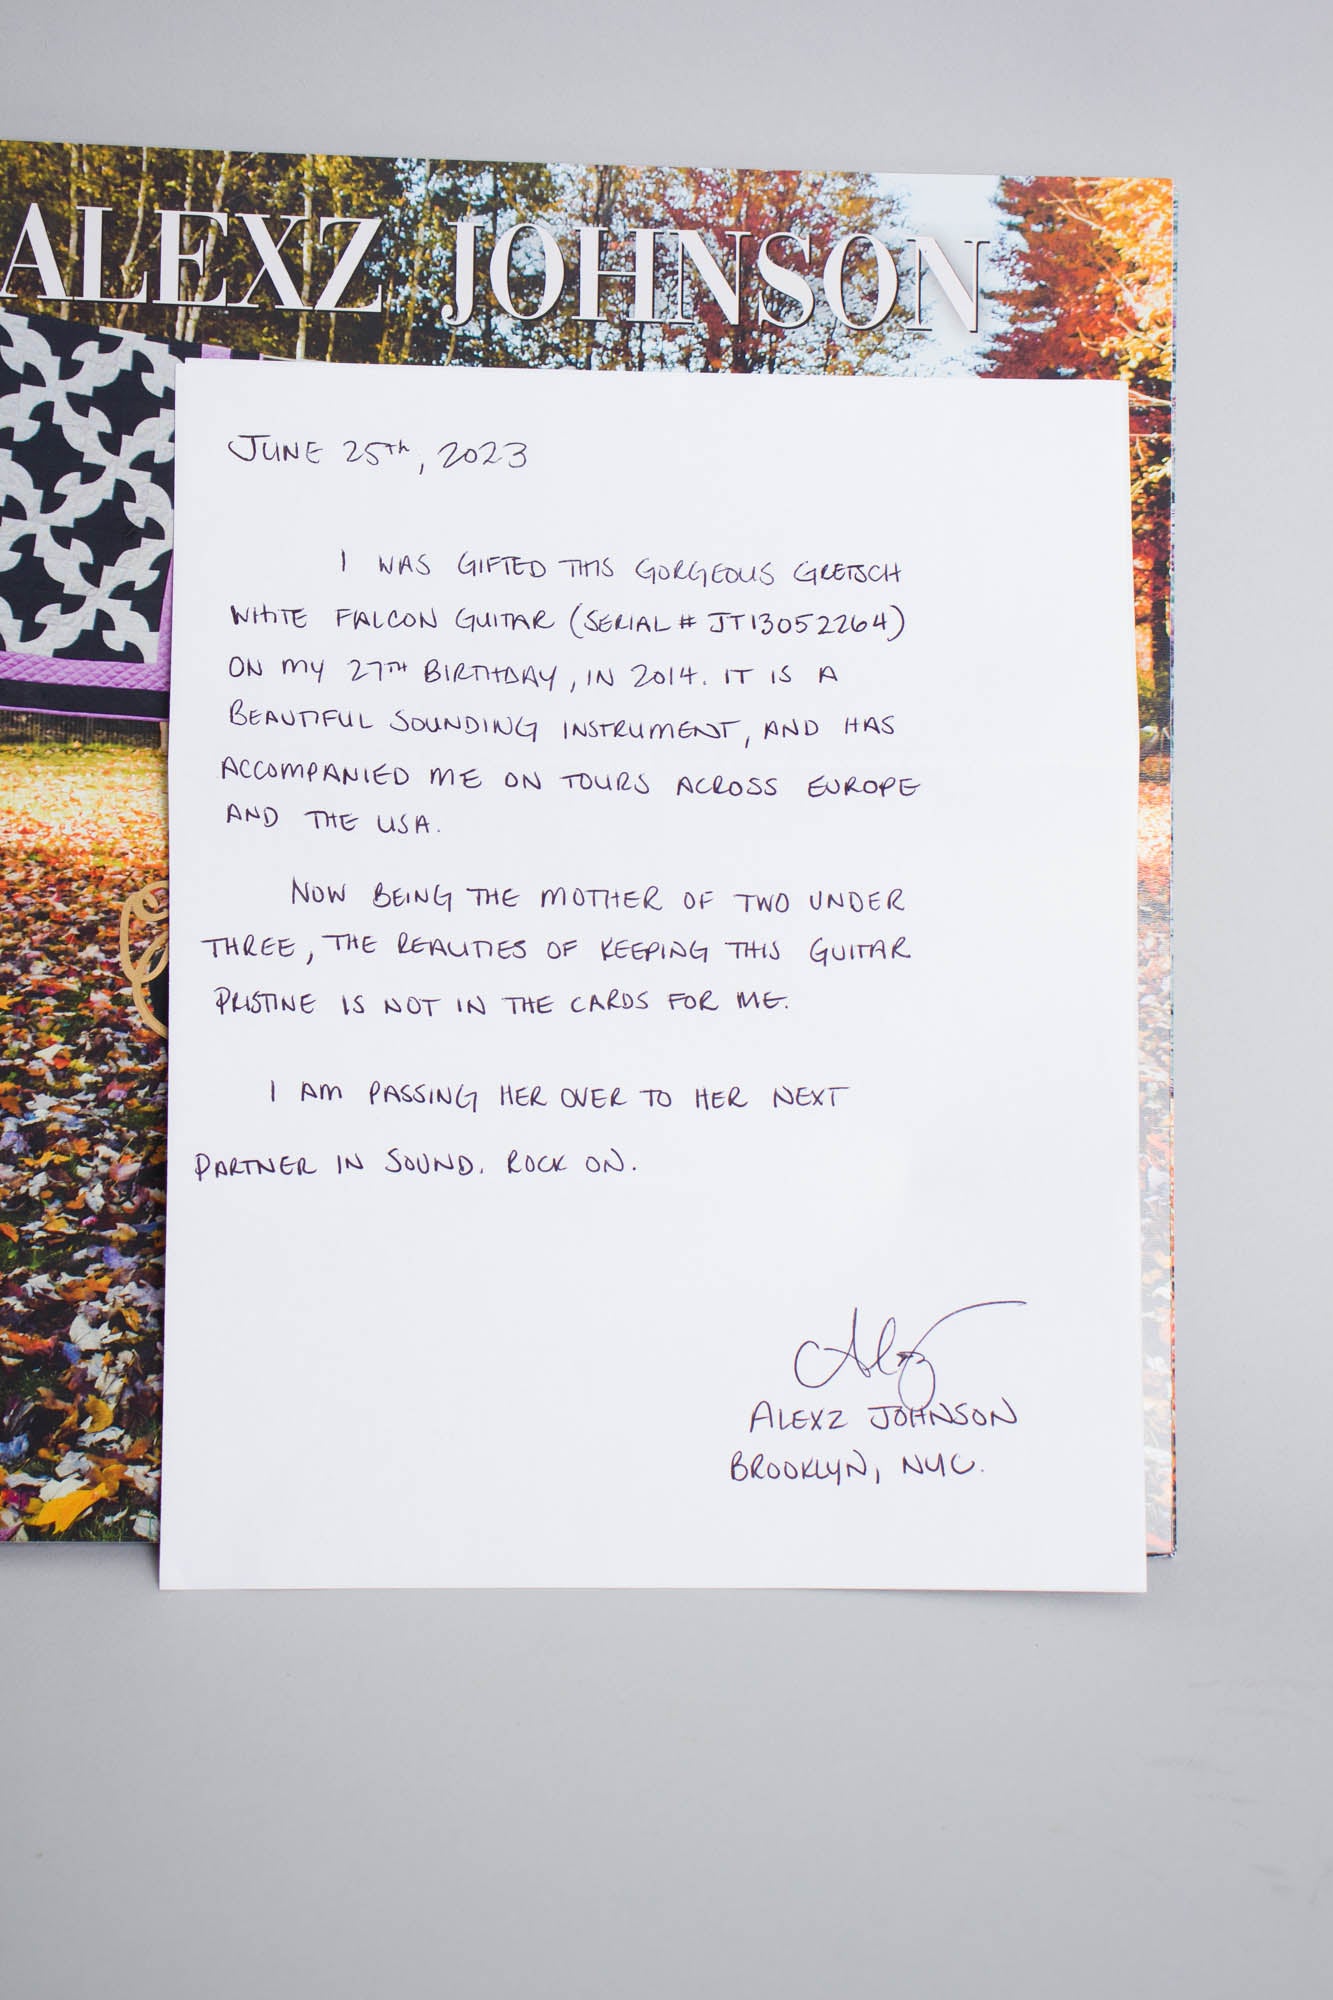 ALEXZ JOHNSON
JUNE 25th, 2023
I WAS GIFTED THIS GORGEOUS GRETSCH
WHITE FALCON GUITAR (SERIAL # JT13052264)
ON MY 27TH BIRTHDAY, IN 2014. IT IS A
BEAUTIFUL SOUNDING INSTRUMENT, AND HAS
ACCOMPANIED ME ON TOURS ACROSS EUROPE
AND THE USA.
NOW BEING THE MOTHER OF TWO UNDER
THREE, THE REALITIES OF KEEPING THIS GUITAR
PRISTINE IS NOT IN THE CARDS FOR ME.
I AM PASSING HER OVER TO HER NEXT
PARTNER IN SOUND. ROCK ON.
Alexz
ALEXZ JOHNSON
BROOKLYN, NYC.